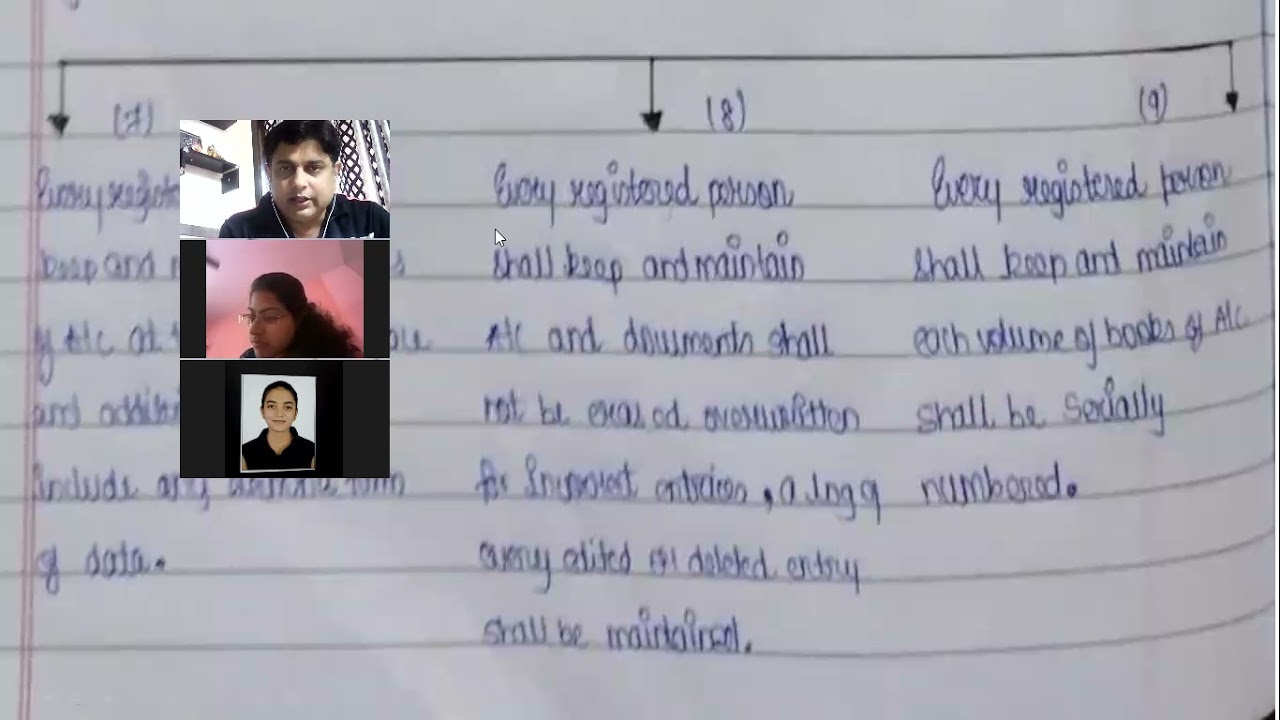 (7)
Every registe
keep and
of A/c at
and additi
include any form
of data.
(8)
Every registered person
shall keep and maintain
A/c and documents shall
not be erased overwritten
for Incorrect entries, a log of
every edited or deleted entry
shall be maintained.
(9)
Every registered person
shall keep and maintain
each volume of books of A/c
shall be Serially
numbered.